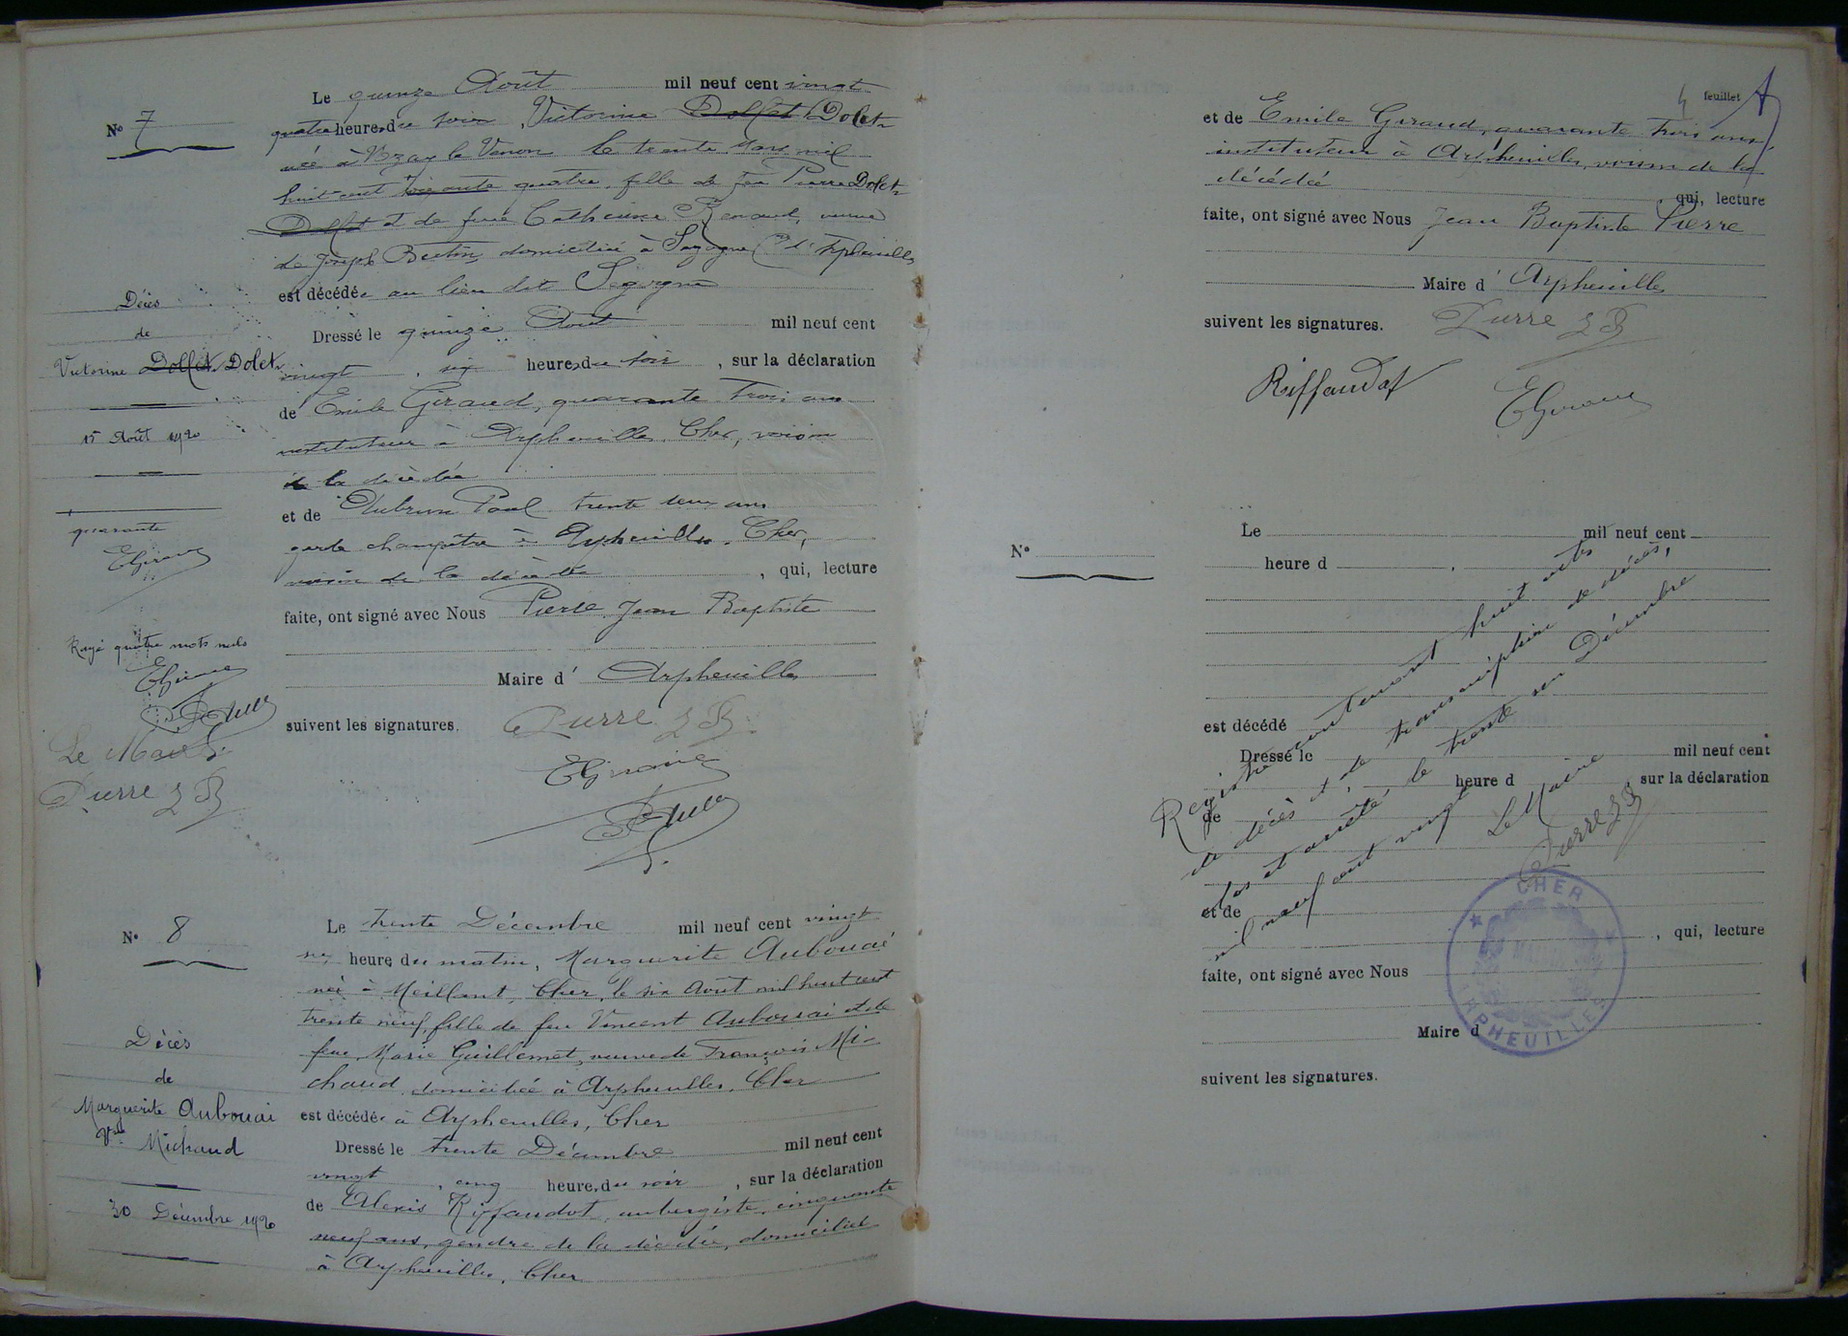 N° 7
Le quinze Août mil neuf cent vingt
quatre heures du soir, Victorine Dollet Dolet
née à Uzay le Venon le trente Mars mil
huit cent soixante quatre, fille de feu Pierre Dolet
Dollet et de feue Catherine Renaud, veuve
de Joseph Bertin, domiciliée à Sagogne Arpheuilles
est décédée au lieu dit Sogogne
Dressé le quinze Août mil neuf cent
vingt, six heures du soir, sur la déclaration
de Emile Giraud, quarante trois ans
instituteur à Arpheuilles, Cher, voisin
de la décédée
et de Aubrun Paul trente deux ans
garde champêtre à Arpheuilles, Cher,
voisin de la décédée, qui, lecture
faite, ont signé avec Nous Pierre Jean Baptiste
Maire d' Arpheuilles
suivent les signatures. Pierre J B
EGiraud
Décès
de
Victorine Dollet Dolet
15 Août 1920
quarante
EGiraud
Rayé quatre mots nuls
EGiraud
Le Maire
Pierre J B
N° 8
Le trente Décembre mil neuf cent vingt
heure du matin, Marguerite Aubouai
née à Meillant, Cher, le six Août mil huit cent
trente neuf, fille de feu Vincent Aubouai et de
feue Marie Guillemet, veuve de François Mi-
chaud domiciliée à Arpheuilles, Cher
est décédée à Arpheuilles, Cher
Dressé le trente Décembre mil neuf cent
vingt, cinq heures du soir, sur la déclaration
de Alexis Riffaudot, aubergiste, cinquante
neuf ans, gendre de la décédée, domicilié
à Arpheuilles, Cher
Décès
de
Marguerite Aubouai
Vve Michaud
30 Décembre 1920
4 feuillet
et de Emile Giraud, quarante trois ans,
instituteur à Arpheuilles, voisin de la
décédée, qui, lecture
faite, ont signé avec Nous Jean Baptiste Pierre
Maire d' Arpheuilles
suivent les signatures. Pierre J B
Riffaudot
EGiraud
N°
Le mil neuf cent
heure d ,
est décédé
Dressé le mil neuf cent
heure d , sur la déclaration
de
et de
, qui, lecture
faite, ont signé avec Nous
Maire d
suivent les signatures.
Registre contenant huit actes
de décès et de transcription de décès,
clos et arrêté, le trente un Décembre
mil neuf cent vingt
Le Maire
Pierre J B
CHER
MAIRIE
ARPHEUILLES